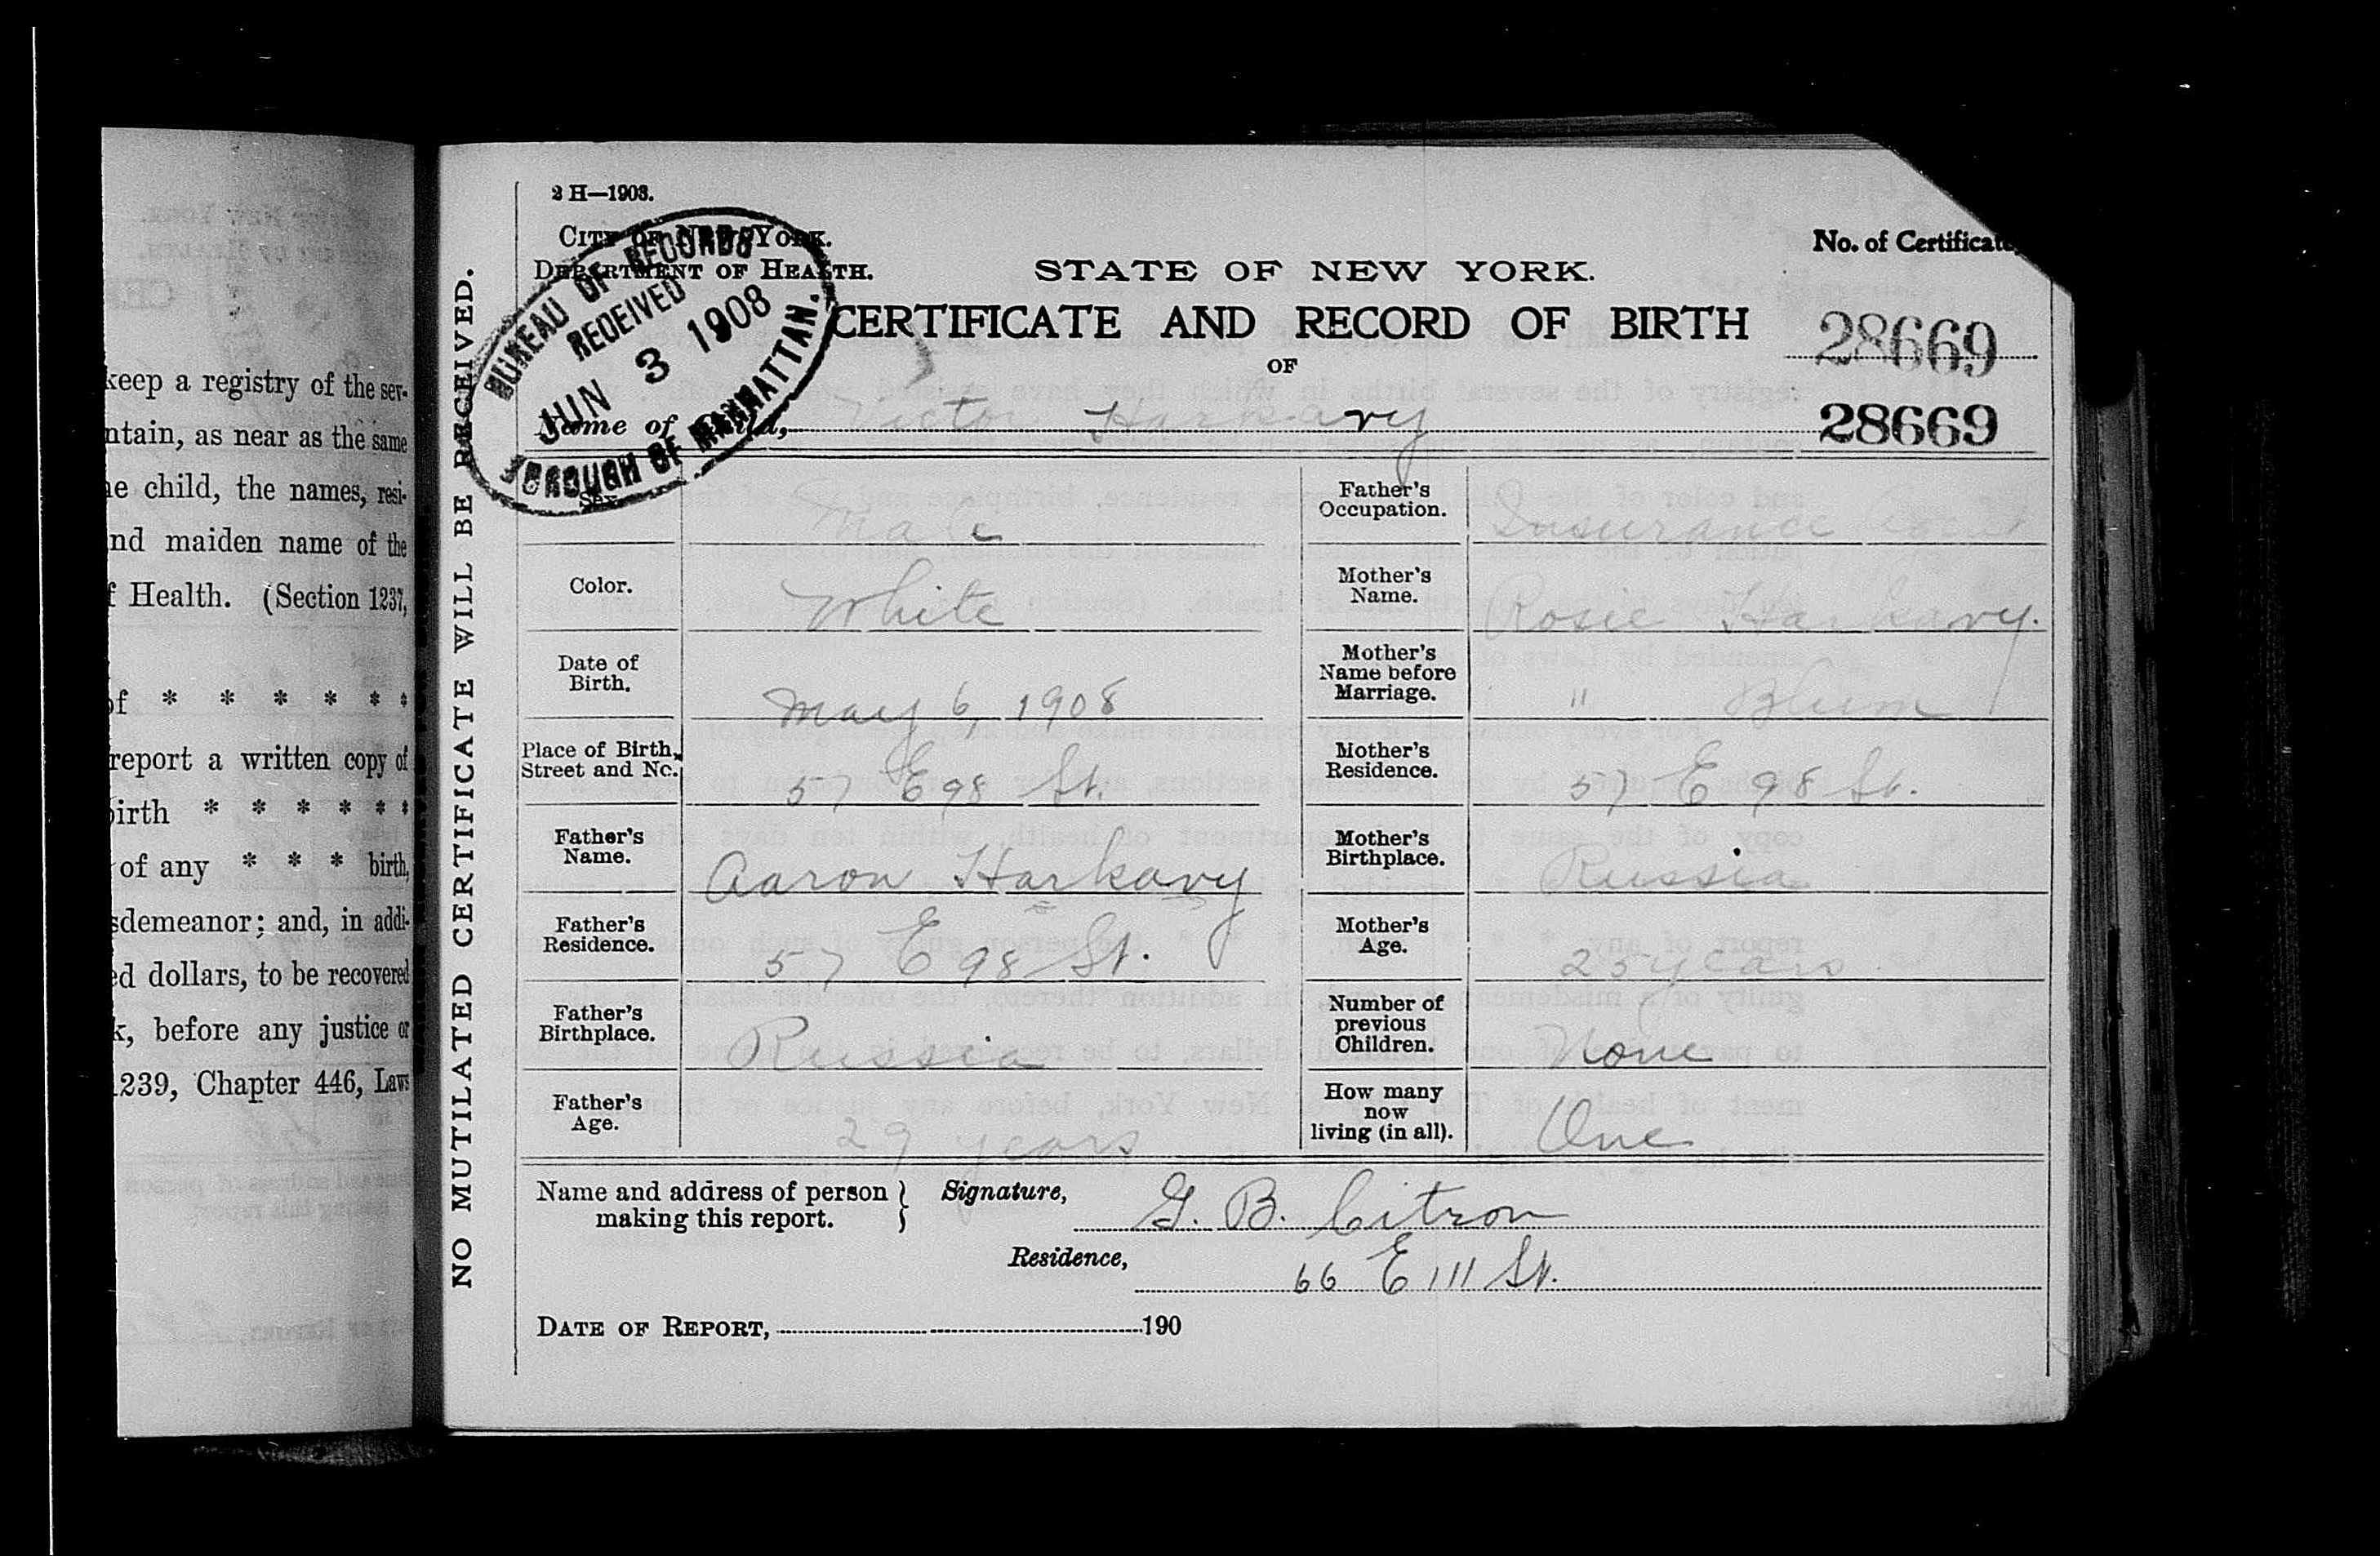 keep a registry of the sev-
ntain, as near as the same
e child, the names, resi-
nd maiden name of the
f Health. (Section 1237,
of * * * * * *
report a written copy of
birth * * * * * *
of any * * * birth,
sdemeanor; and, in addi-
ed dollars, to be recovered
k, before any justice or
1239, Chapter 446, Laws
NO MUTILATED CERTIFICATE WILL BE RECEIVED.
2 H—1908.
CITY OF NEW YORK.
DEPARTMENT OF HEALTH.
BUREAU OF RECORDS
RECEIVED
JUN 3 1908
BOROUGH OF MANHATTAN.
STATE OF NEW YORK.
No. of Certificate,
CERTIFICATE AND RECORD OF BIRTH
28669
OF
Name of Child, Victor Harkavy
28669
Sex. Male
Father's Occupation. Insurance
Color. White
Mother's Name. Rosie Harkavy.
Date of Birth. May 6, 1908
Mother's Name before Marriage. " Blum
Place of Birth, Street and No. 57 E 98 St.
Mother's Residence. 57 E 98 St.
Father's Name. Aaron Harkavy
Mother's Birthplace. Russia
Father's Residence. 57 E 98 St.
Mother's Age. 25 years
Father's Birthplace. Russia
Number of previous Children. None
Father's Age. 29 years
How many now living (in all). One
Name and address of person making this report. } Signature, G. B. Citron
Residence, 66 E 111 St.
DATE OF REPORT, 190